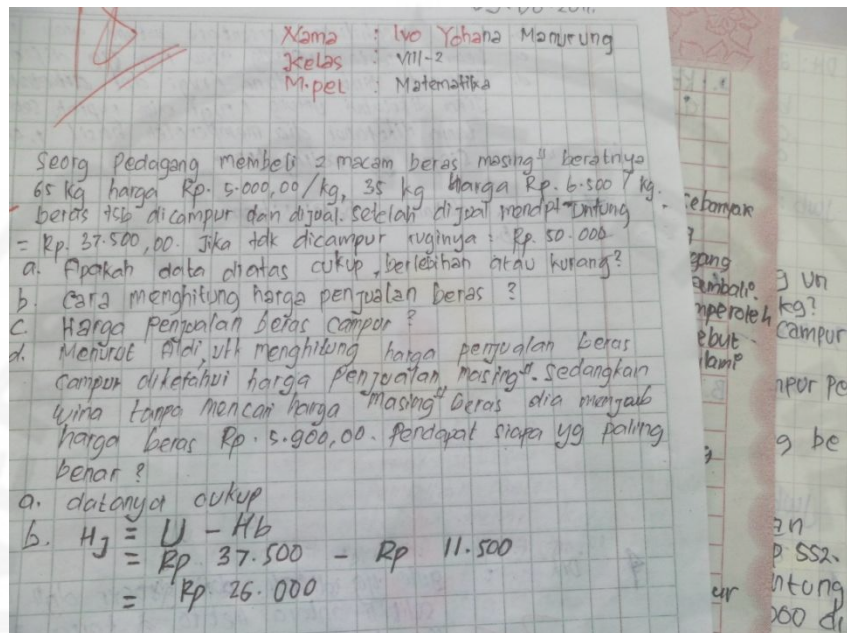 Nama : Ivo Yohana Manurung
Kelas : VIII-2
M.pel : Matematika
Seorg Pedagang membeli 2 macam beras masing" beratnya
65 Kg harga Rp. 5.000,00/kg, 35 kg Harga Rp. 6.500/kg.
beras tsb dicampur dan dijual. setelah dijual mendpt untung
= Rp. 37.500,00. Jika tdk dicampur ruginya = Rp. 50.000
a. Apakah data diatas cukup, berlebihan atau kurang?
b. Cara menghitung harga penjualan beras ?
c. Harga Penjualan beras campur ?
d. Menurut Aldi, utk menghitung harga penjualan beras
campur diketahui harga Penjualan masing". Sedangkan
wina tanpa mencari harga masing" beras dia menjwb
harga beras Rp. 5.900,00. Pendapat siapa yg paling
benar ?
a. datanya cukup
b. HJ = U - Hb
= Rp 37.500 - Rp 11.500
= Rp 26.000
sebanyak
?
gang
mperoleh
ebut
ilami
ur
g un
kg?
campur
mpur pe
g be
an
p 552.
ntung
000 di